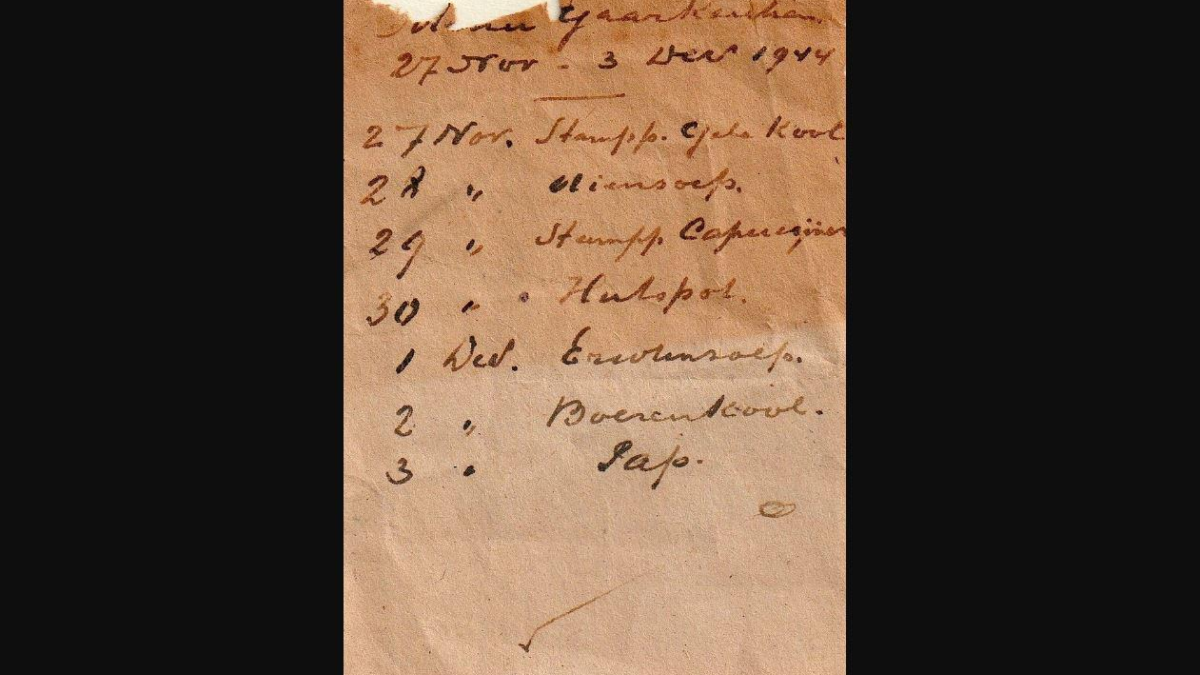 Gaarkeuken
27 Nov - 3 Dec 1944
27 Nov. Stampp. Gele Kool
28 " Uiensoep.
29 " Stampp. Capucijner
30 " Hutspot.
1 Dec. Erwtensoep.
2 " Boerenkool.
3 " Pap.